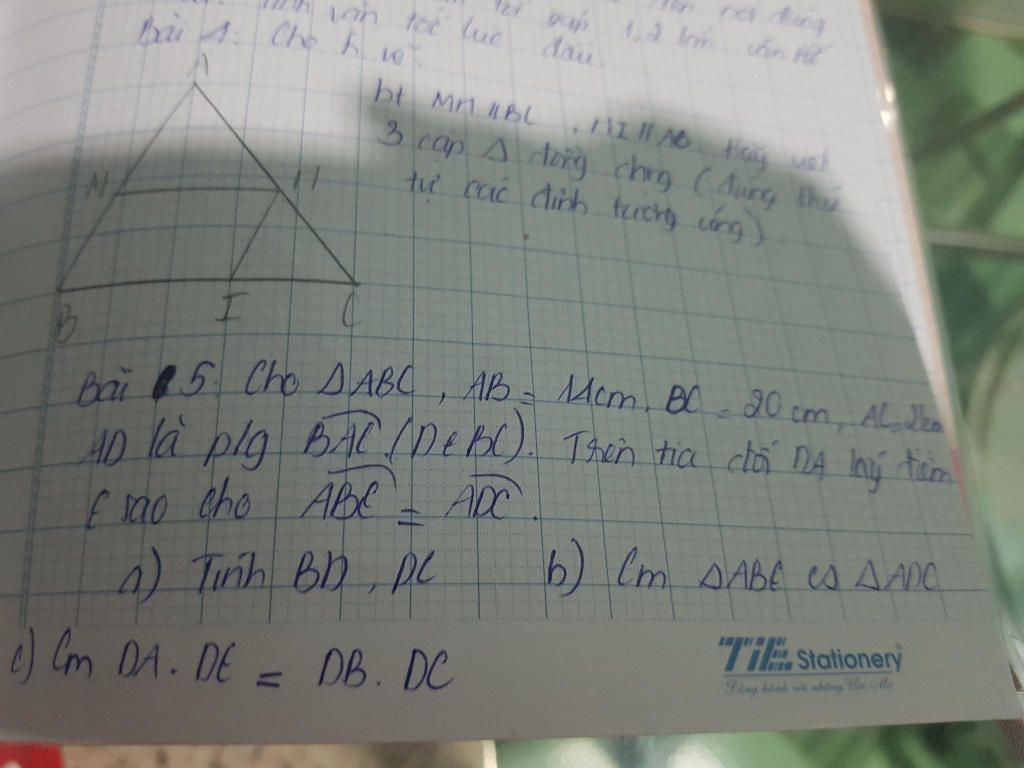 1,2 km
vận tốc lúc đầu.
Bài 4: Cho h vẽ.
A
bt MN // BC, NI // AB. Hãy viết
3 cặp Δ đồng dạng (đúng thứ
tự các đỉnh tương ứng)
M N
B I C
Bài 5. Cho ΔABC, AB = 14cm, BC = 20 cm, AC = 21cm
AD là p/g BAC. (D ∈ BC). Trên tia đối DA lấy điểm
E sao cho ABE = ADC.
a) Tính BD, DC b) Cm ΔABE ∽ ΔADC
c) Cm DA . DE = DB . DC
TiE Stationery